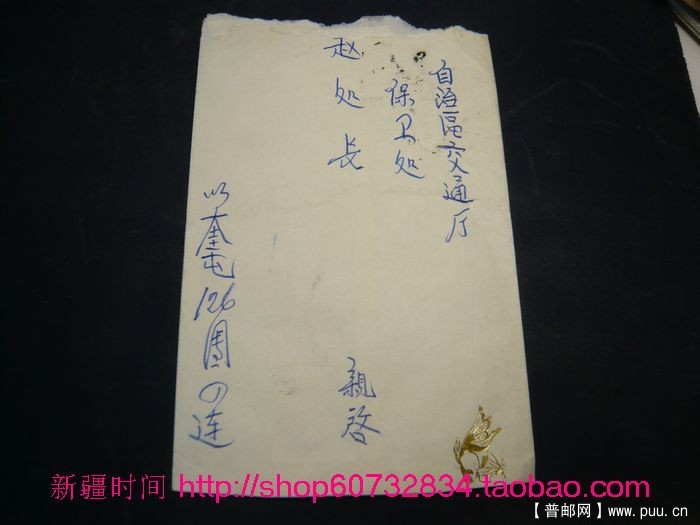 自治區交通厅
保卫处
赵处长
親啓
奎屯126團の连
新疆时间 http://shop60732834.taobao.com
【普邮网】www.puu.cn